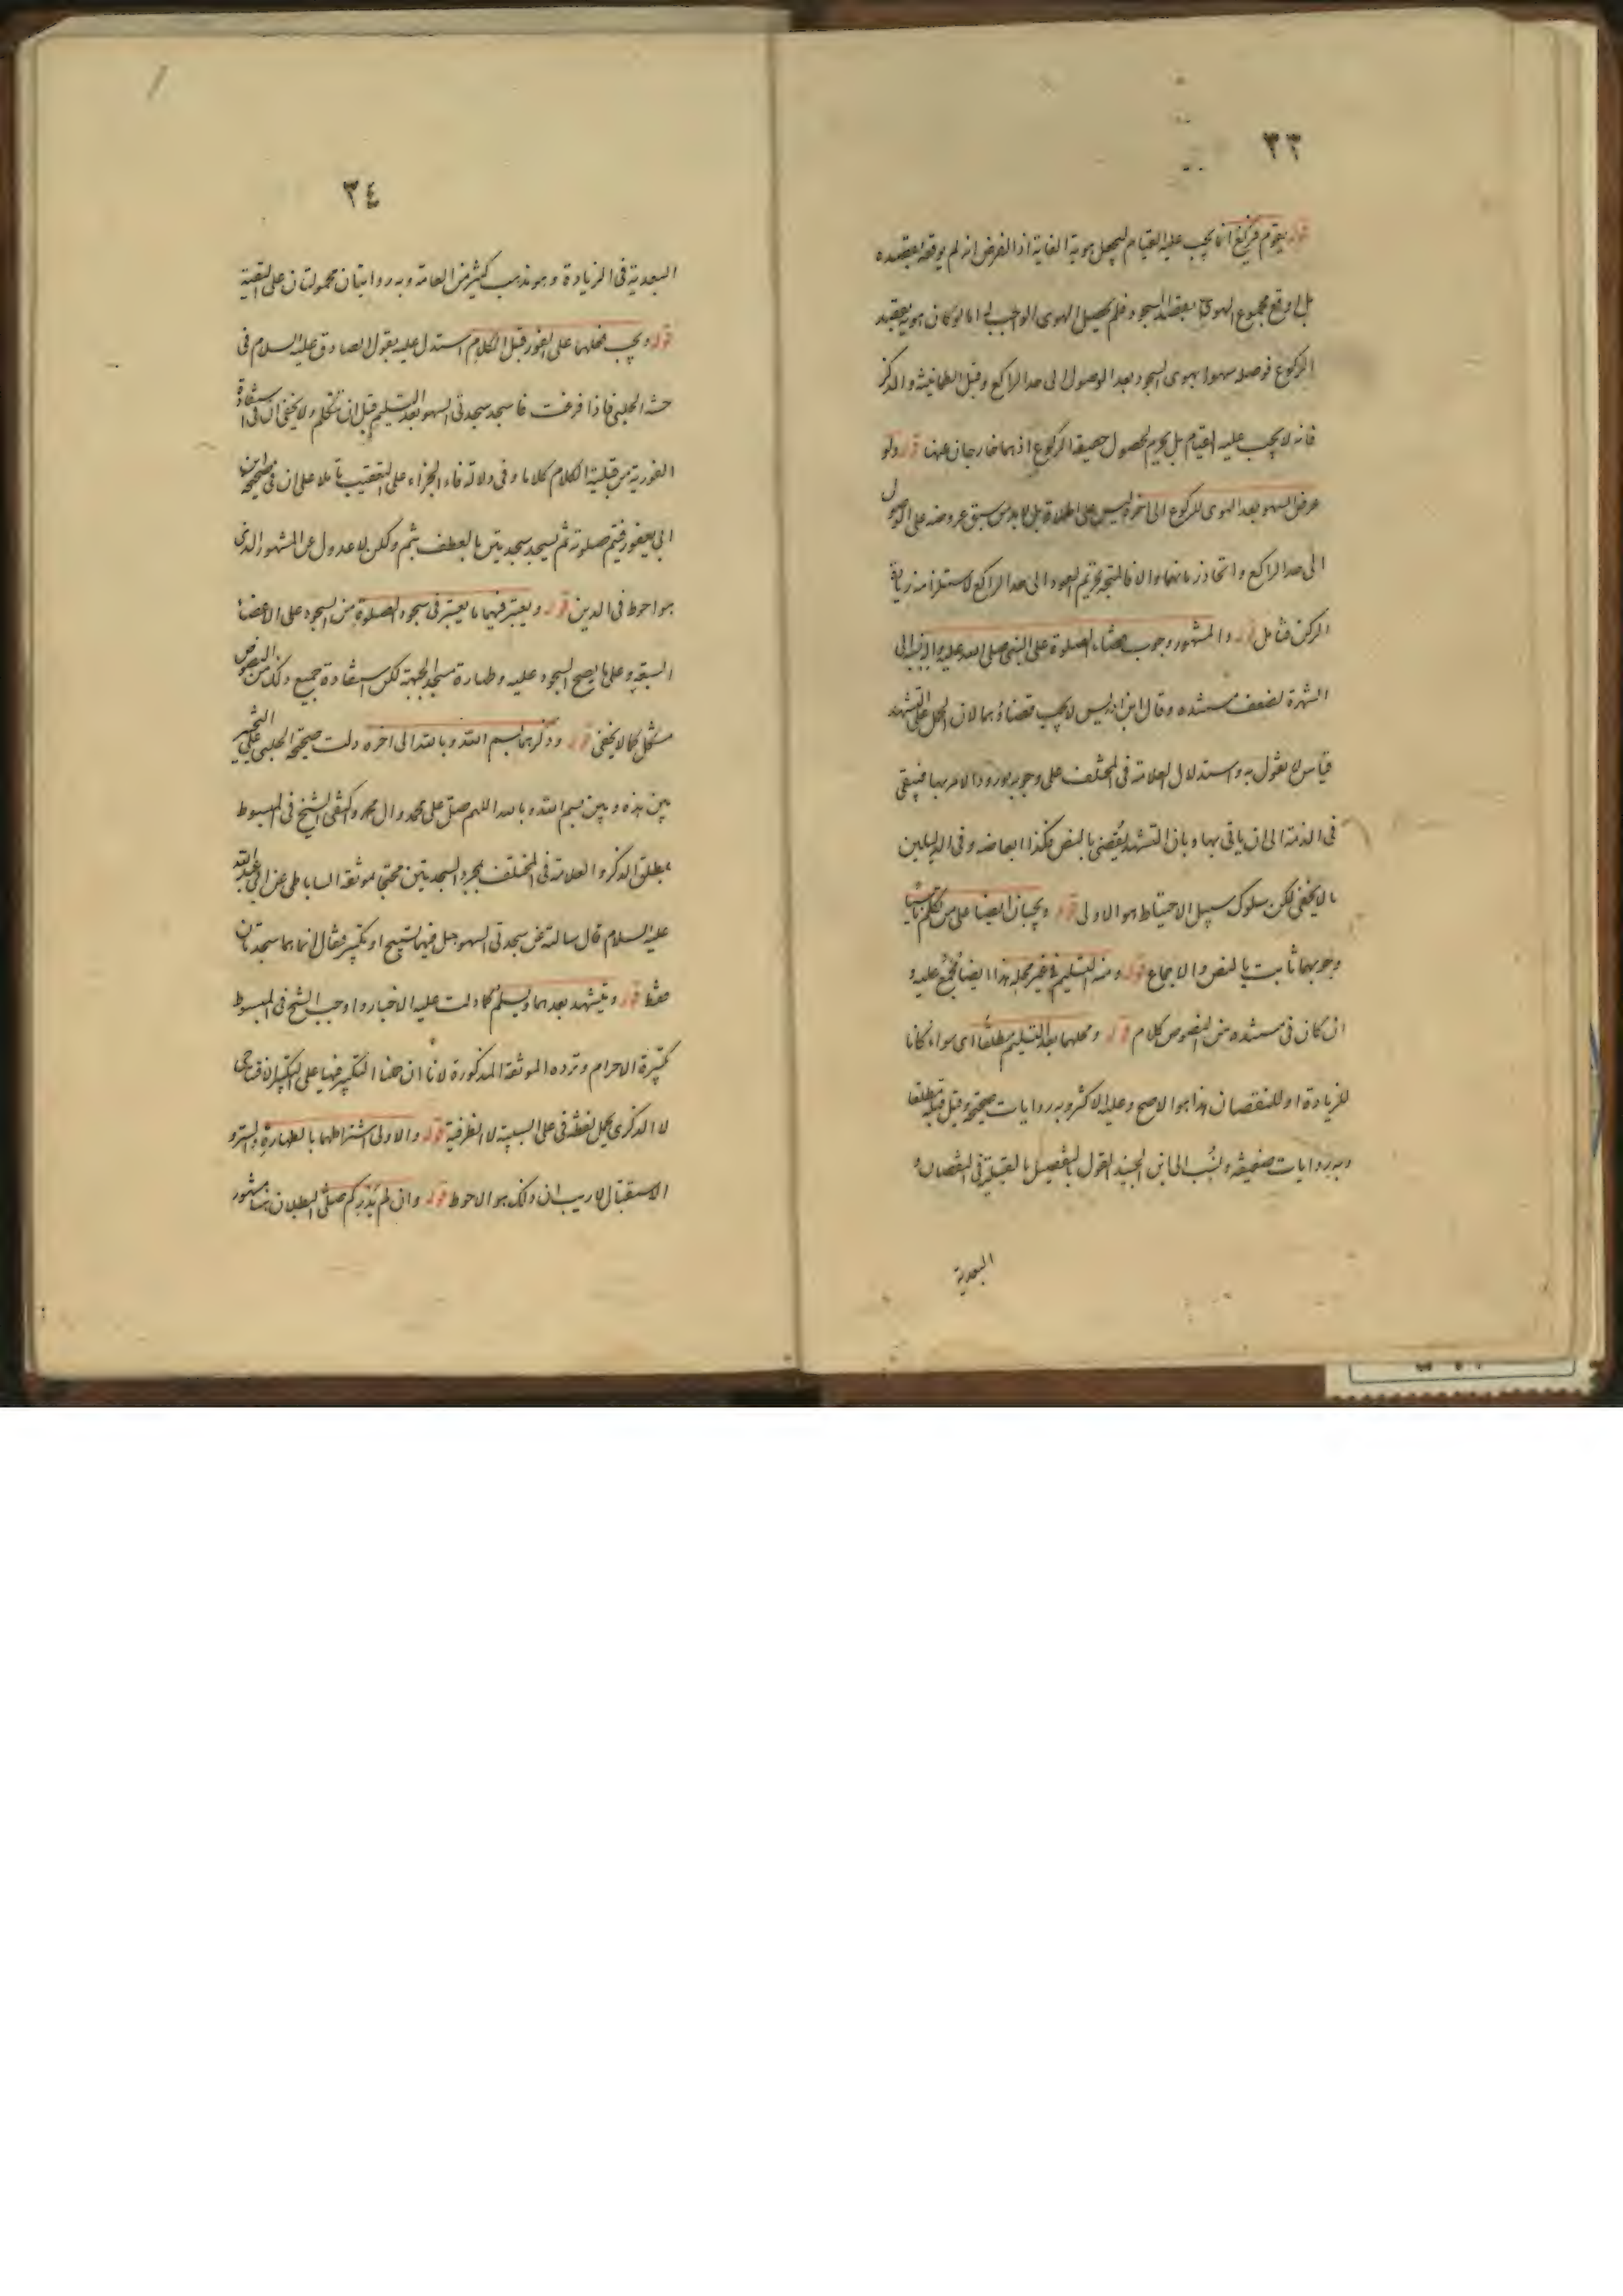 ٣٣
قوله يقوم فيركع انما يجب عليه القيام ليحصل هويه الغاية اذ الفرض انه لم يوقعه بقصده
بل اوقع مجموع الهوى بقصد السجود فلم يحصل الهوى الواجب اما لو كان هويه بقصد
الركوع فوصله سهوا بهوى السجود بعد الوصول الى حد الراكع وقبل الطمأنينة والذكر
فانه لا يجب عليه القيام بل يحرم لحصول حقيقة الركوع اذ هما خارجان عنها قوله ولو
عرض السهو بعد الهوى للركوع الى اخره ليس على اطلاقه بل لا بد من سبق عروضه على الوصول
الى حد الراكع والا فالمتجه تحريم العود الى حد الراكع لاستلزامه زيادة
الركن فتامل قوله والمشهور وجوب قضاء الصلوة على النبى صلى الله عليه واله
الشهرة لضعف مستنده وقال ابن ادريس لا يجب قضاؤها لان الحمل على التشهد
قياس لا نقول به واستدلال العلامة فى المختلف على وجوبه بورود الامر بها فيبقى
فى الذمة الى ان ياتى بها وبان التشهد يقضى بالنص فكذا ابعاضه وفى الدليلين
ما لا يخفى لكن سلوك سبيل الاحتياط هو الاولى قوله ويجبان ايضا على من تكلم ناسيا
وجوبهما ثابت بالنص والاجماع قوله ومنه التسليم فى غير محله هذا ايضا مجمع عليه و
ان كان فى مستنده من النصوص كلام قوله ومحلهما بعد التسليم مطلقا اى سواء كانا
للزيادة او للنقصان هذا هو الاصح وعليه الاكثر وبه روايات صحيحة وقيل قبله مطلقا
وبه روايات ضعيفة ونسب الى ابن الجنيد القول بالتفصيل بالقبلية فى النقصان و
البعدية
٣٤
البعدية فى الزيادة وهو مذهب كثير من العامة وبه روايتان محمولتان على التقية
قوله ويجب فعلهما على الفور قبل الكلام استدل عليه بقول الصادق عليه السلام فى
حسنة الحلبى فاذا فرغت فاسجد سجدتى السهو بعد التسليم قبل ان تتكلم ولا يخفى ان فى استفادة
الفورية من قبلية الكلام كلاما وفى دلالة فاء الجزاء على التعقيب تاملا على ان فى صحيحة ابن
ابى يعفور فيتم صلوته ثم يسجد سجدتين بالعطف بثم ولكن لا عدول عن المشهور الذى
هو احوط فى الدين قوله ويعتبر فيهما ما يعتبر فى سجود الصلوة من السجود على الاعضاء
السبعة وعلى ما يصح السجود عليه وطهارة مسجد الجبهة لكن استفادة جميع ذلك من النصوص
مشكل كما لا يخفى قوله وذكرهما بسم الله وبالله الى اخره دلت صحيحة الحلبى على التخيير
بين هذه وبين بسم الله وبالله اللهم صل على محمد وال محمد واكتفى الشيخ فى المبسوط
بمطلق الذكر والعلامة فى المختلف بمجرد السجدتين محتجا بموثقة الساباطى عن ابى عبد الله
عليه السلام قال سالته عن سجدتى السهو هل فيهما تسبيح او تكبير فقال لا انما هما سجدتان
فقط قوله ويتشهد بعدهما ويسلم كما دلت عليه الاخبار واوجب الشيخ فى المبسوط
تكبيرة الاحرام وترده الموثقة المذكورة لانا ان حملنا التكبير فيها على التكبير الافتتاحى
لا الذكرى يحمل لفظة فى على السببية لا الظرفية قوله والاولى اشتراطهما بالطهارة والستر و
الاستقبال لا ريب ان ذلك هو الاحوط قوله وان لم يذكر كم صلى البطلان هنا مشهور